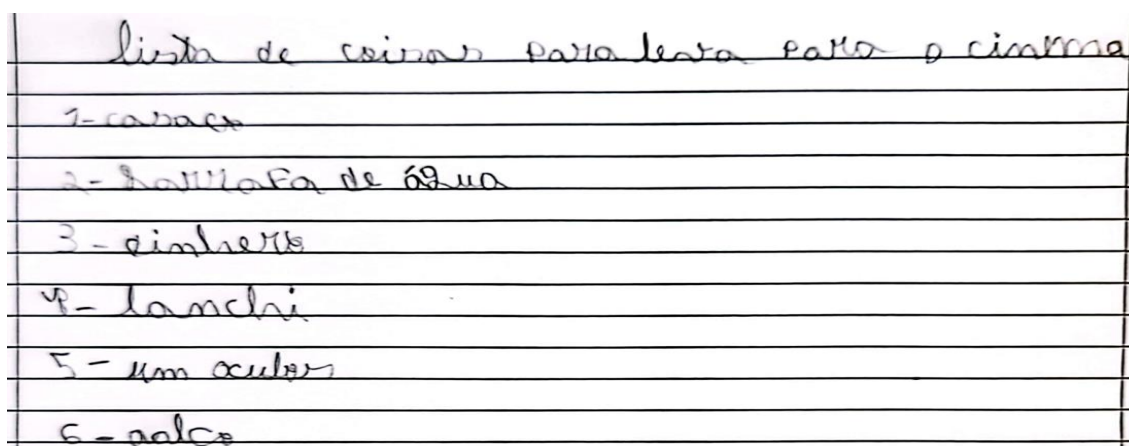 lista de coisas para leva para o cinema
1-casaco
2-garrafa de água
3-dinhero
4-lanchi
5-um oculos
6-